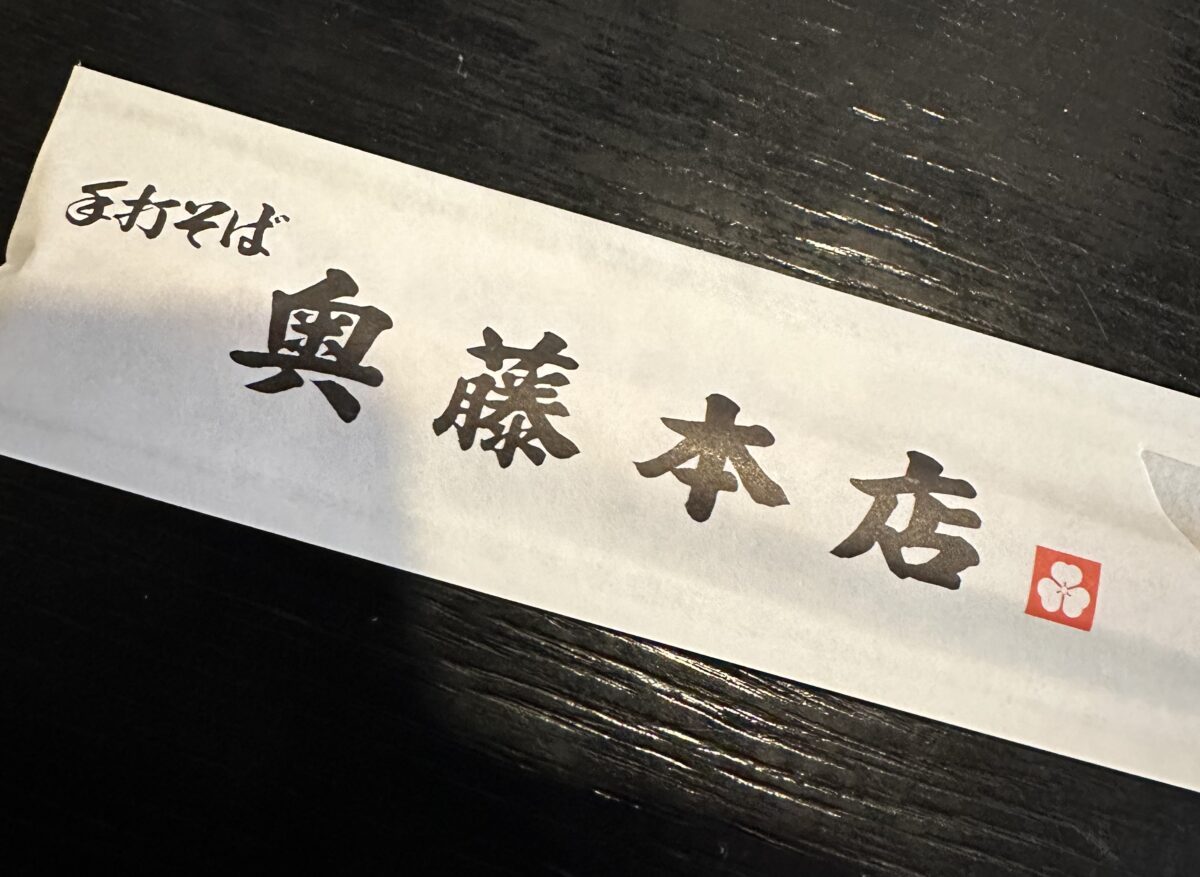 手打そば
奥藤本店